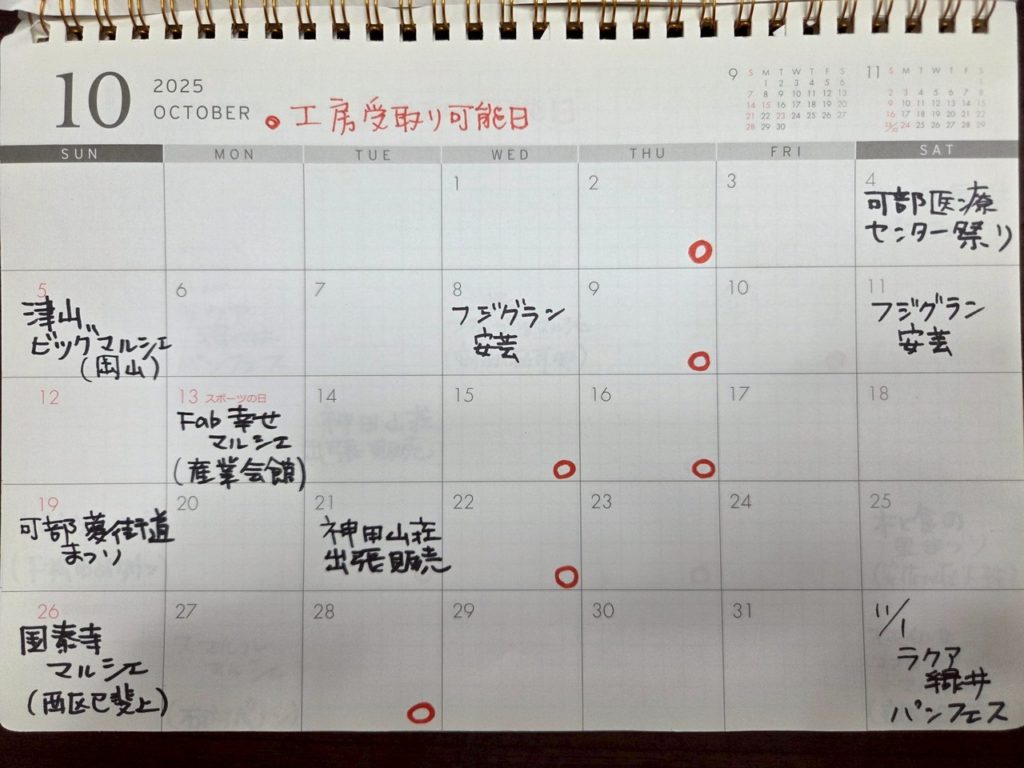 10
2025
OCTOBER
○ 工房受取り可能日
9
S M T W T F S
1 2 3 4 5 6
7 8 9 10 11 12 13
14 15 16 17 18 19 20
21 22 23 24 25 26 27
28 29 30
11
S M T W T F S
1
2 3 4 5 6 7 8
9 10 11 12 13 14 15
16 17 18 19 20 21 22
23/30 24 25 26 27 28 29
SUN MON TUE WED THU FRI SAT
1 2 3 4
可部医療
センター祭り
5 6 7 8 9 10 11
津山
ビッグマルシェ
(岡山)
フジグラン
安芸
フジグラン
安芸
12 13 スポーツの日 14 15 16 17 18
Fab 幸せ
マルシェ
(産業会館)
19 20 21 22 23 24 25
可部夢街道
まつり
神田山荘
出張販売
26 27 28 29 30 31 11/1
国泰寺
マルシェ
(西区己斐上)
ラクア
緑井
パンフェス